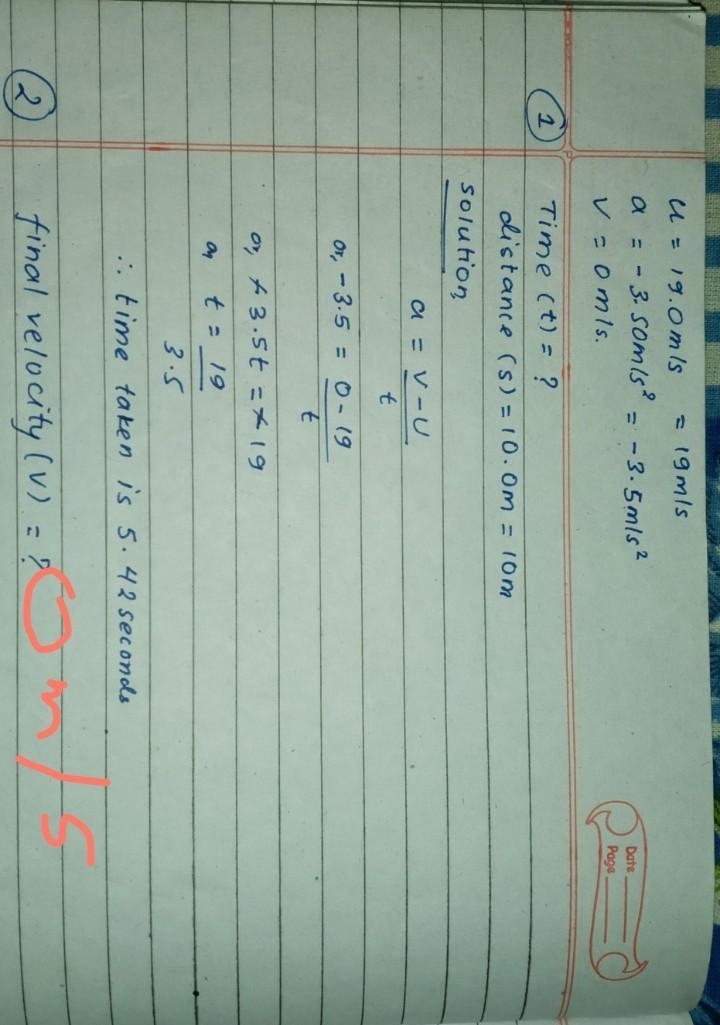 Date
Page
u = 19.0m/s = 19m/s
a = -3.50m/s² = -3.5m/s²
v = 0m/s.
① Time (t) = ?
distance (s) = 10.0m = 10m
solution,
a = v-u/t
or, -3.5 = 0-19/t
or, -3.5t = -19
or, t = 19/3.5
∴ time taken is 5.42 seconds
② final velocity (v) = ? 0 m/s